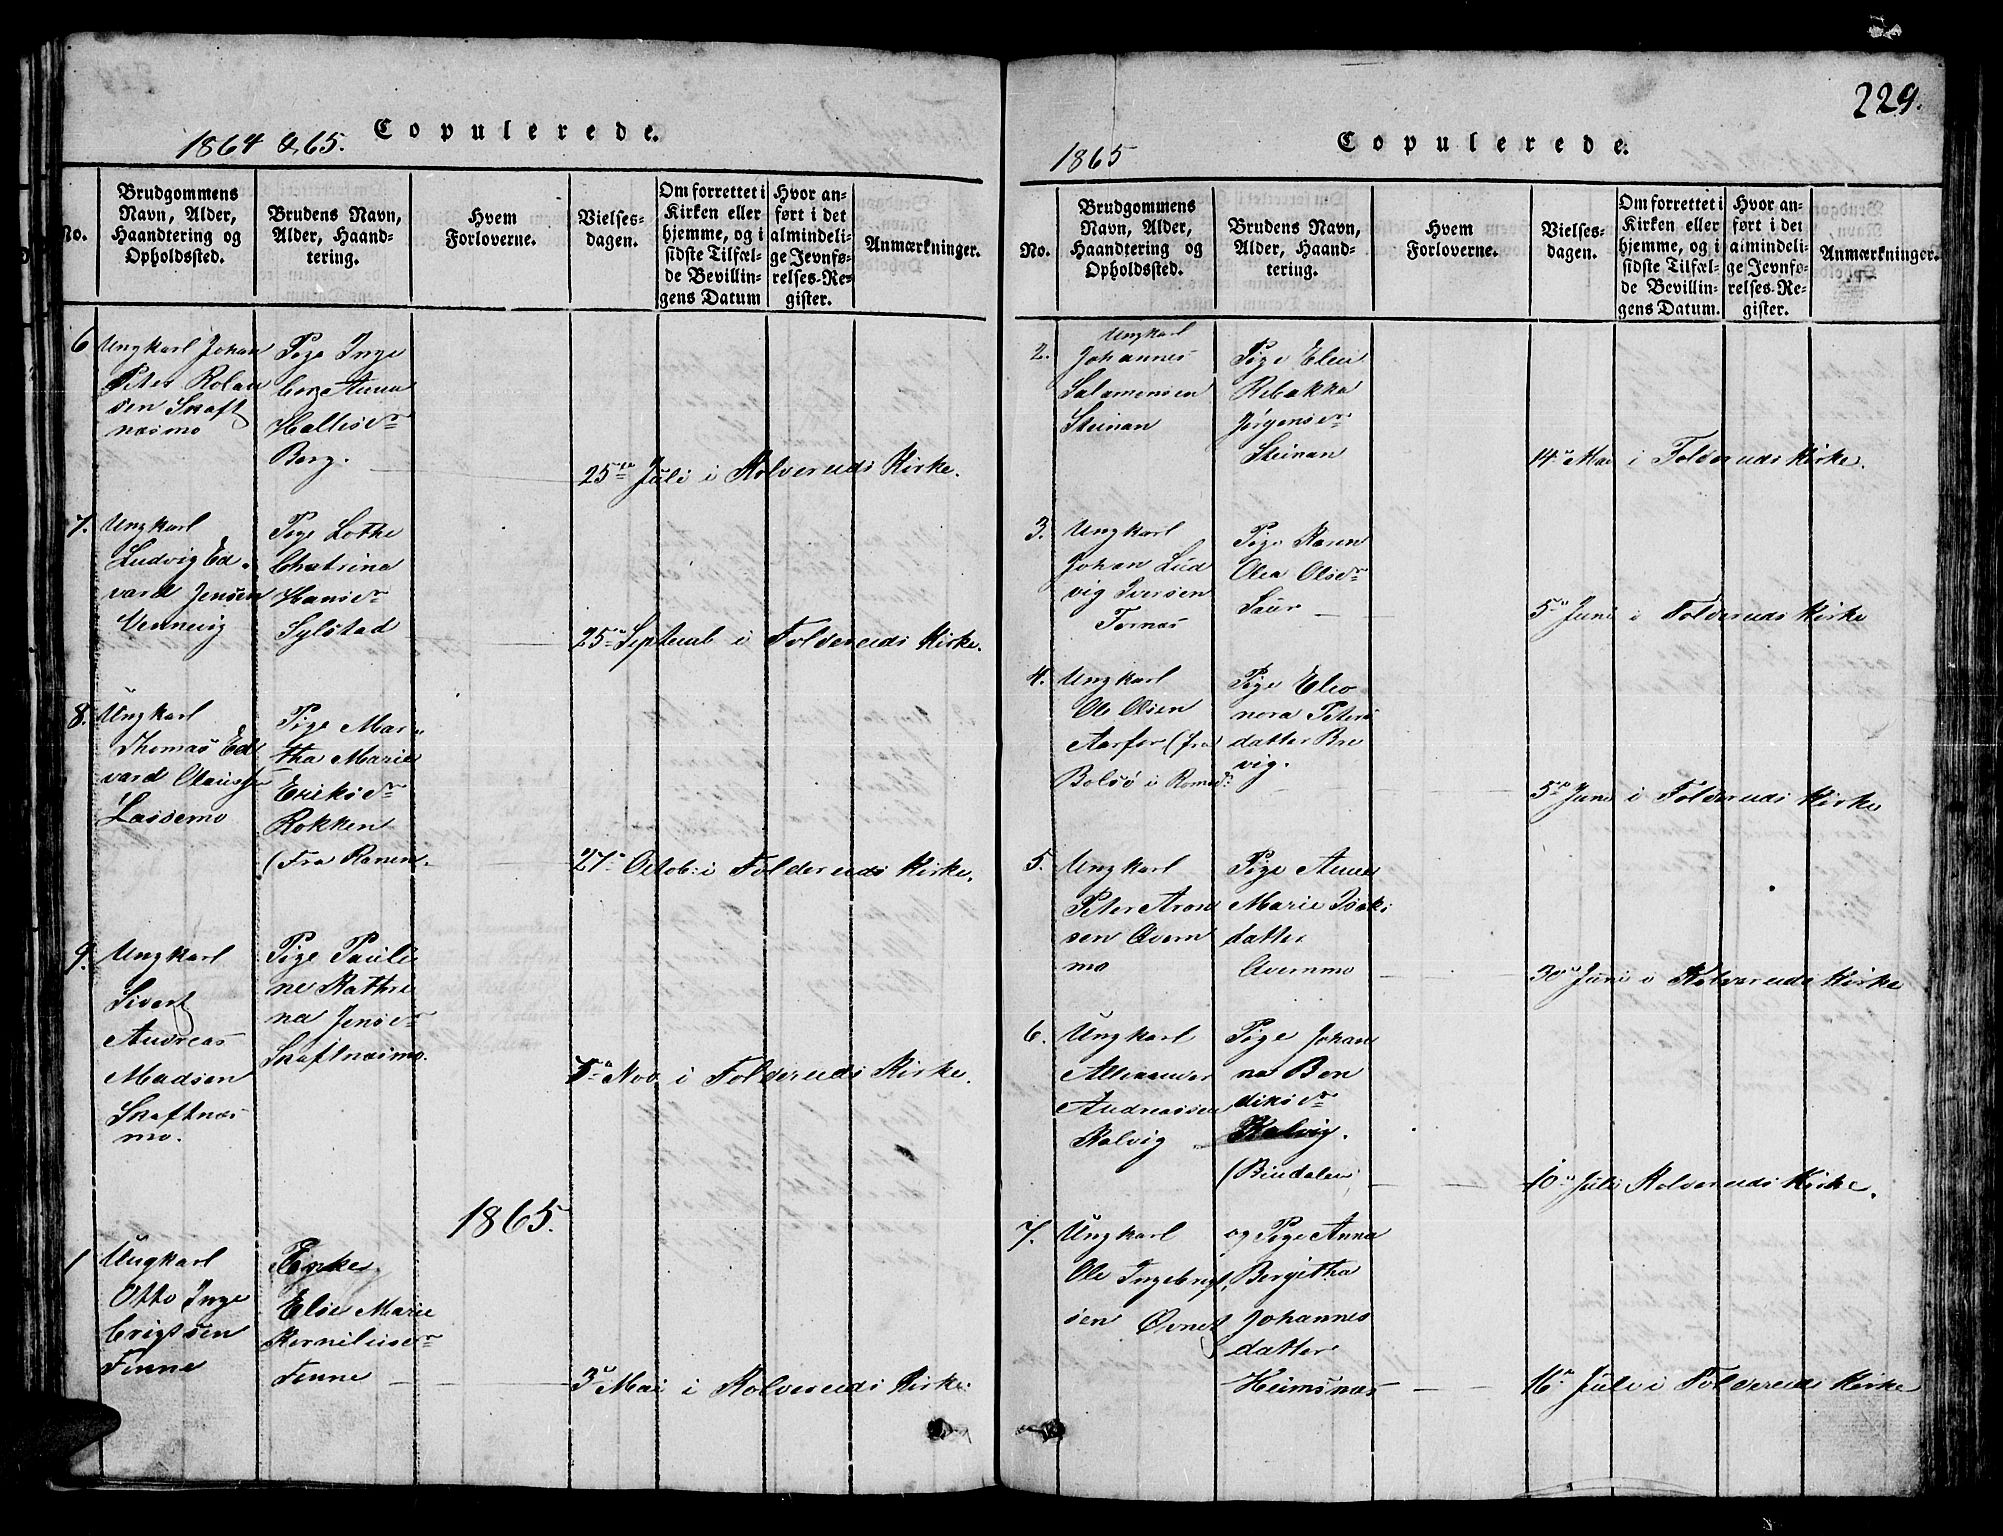 1864 & 65. Copulerede.
No.
Brudgommens
Navn, Alder,
Haandtering og
Opholdssted.
Brudens Navn,
Alder, Haand-
tering.
Hvem
Forloverne.
Vielses-
dagen.
Om forrettet i
Kirken eller
hjemme, og i
sidste Tilfæl-
de Bevillin-
gens Datum
Hvor an-
ført i det
almindeli-
ge Jevnfø-
relses-Re-
gister.
Anmærkninger.
6 Ungkarl Johan
Peter Rolan
sen Skaft
næsmo
Pige Inge
borg Anna
Hallisdr
Berg.
25de Juli i Kolvereids Kirke.
7. Ungkarl
Ludvig Ed
vard Jensen
Vennevig
Pige Lothe
Chatrina
Hansdr
Sylstad
25de Septemb i Foldereids Kirke.
8. Ungkarl
Thomas Ed
vard Olaussen
Lassemo
Pige Mar
tha Marie
Eriksdr
Rokken
(Fra Ranen.
27de Octob: i Foldereids Kirke.
9. Ungkarl
Sivert
Andreas
Madsen
Skaftnæs
mo.
Pige Pauli
ne Kathri
na Jensdr
Skaftnæsmo.
5de Nov. i Foldereids Kirke.
1865.
1 Ungkarl
Otto Inge
brigtsen
Finne
Enke
Else Marie
Kornelius dr
Finne
3de Mai i Kolvereids Kirke.
229.
1865 Copulerede.
No.
Brudgommens
Navn, Alder,
Haandtering og
Opholdssted.
Brudens Navn,
Alder, Haand-
tering.
Hvem
Forloverne.
Vielses-
dagen.
Om forrettet i
Kirken eller
hjemme, og i
sidste Tilfæl-
de Bevillin-
gens Datum.
Hvor an-
ført i det
almindeli-
ge Jevnfø-
relses-Re-
gister.
Anmærkninger.
2. Ungkarl
Johannes
Salamonsen
Steinan
Pige Elen
Rebakka
Jørgensdr
Steinan
14de Mai i Foldereids Kirke.
3. Ungkarl
Johan Lud
vig Iversen
Fornæs
Pige Karen
Olea Olsdr
Saur
5de Juni i Foldereids Kirke
4. Ungkarl
Ole Olsen
Aarfor (fra
Bolsø i Romsd:
Pige Eleo
nora Peters
datter Bre
vig.
5de Juni i Foldereids Kirke
5. Ungkarl
Peter Aron
sen Qvern
mo
Pige Anne
Marie Isaks
datter
Qvernmo
30de Juni i Kolvereids Kirke
6. Ungkarl
Alexander
Andreassen
Kalvig
Pige Johan
na Ben
diksdr
Kalvig.
(Bindalen
10de Juli Kolvereids Kirke.
7. Ungkarl
Ole Ingebrigt
sen Øvnet
og Pige Anna
Bergitha
Johannes
datter
Heimsnæs
16de Juli i Foldereids Kirke